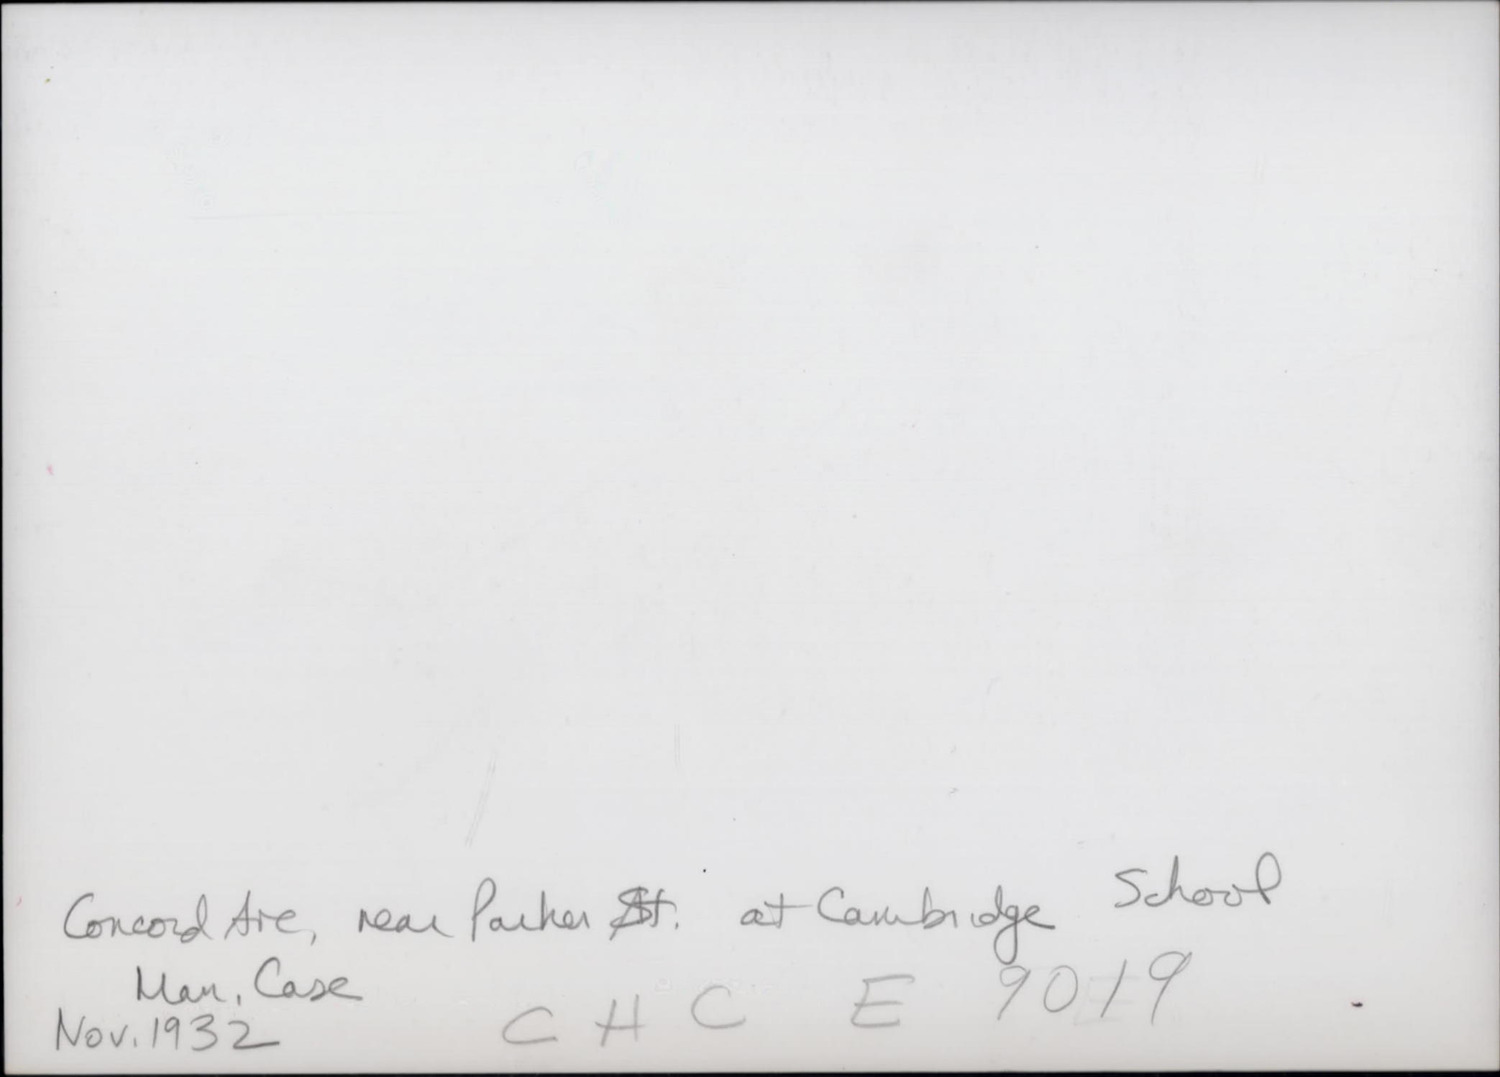 Concord Ave, near Parker St. at Cambridge School
Man. Case
Nov. 1932
CHC E 9019